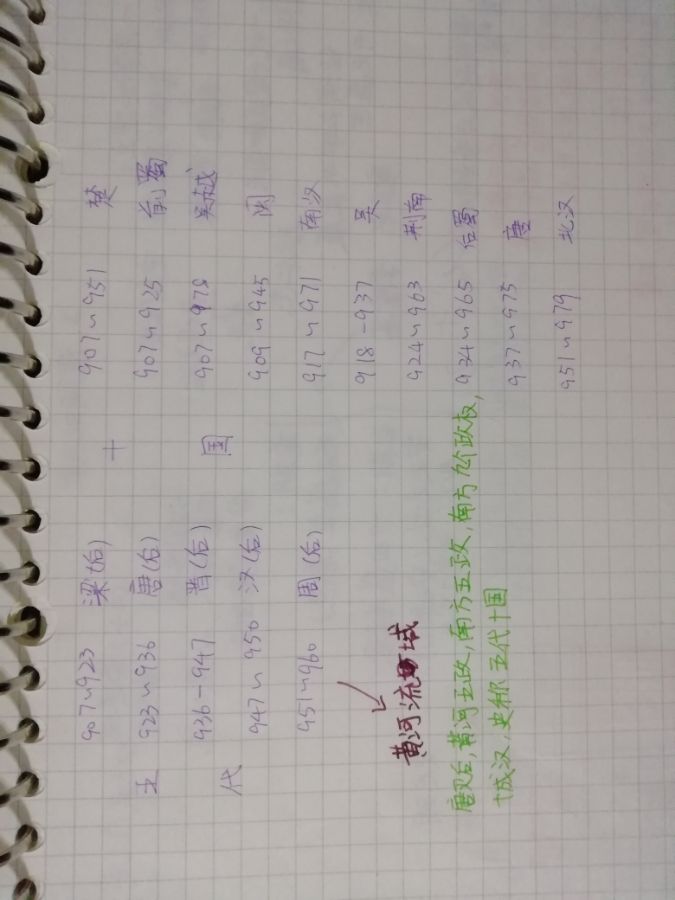 907~923 梁(后) 十 907~951 楚
五 923~936 唐(后) 907~925 前蜀
936-947 晋(后) 国 907~978 吴越
代 947~950 汉(后) 909~945
951~960 周(后) 917~971 南汉
918-937 吴
924~963 荆南
934~965 后蜀
937~975 唐
951~979 北汉
黄河流域
后,黄河五政,南方五政,南方九个政权,
十成汉,史称五代十国